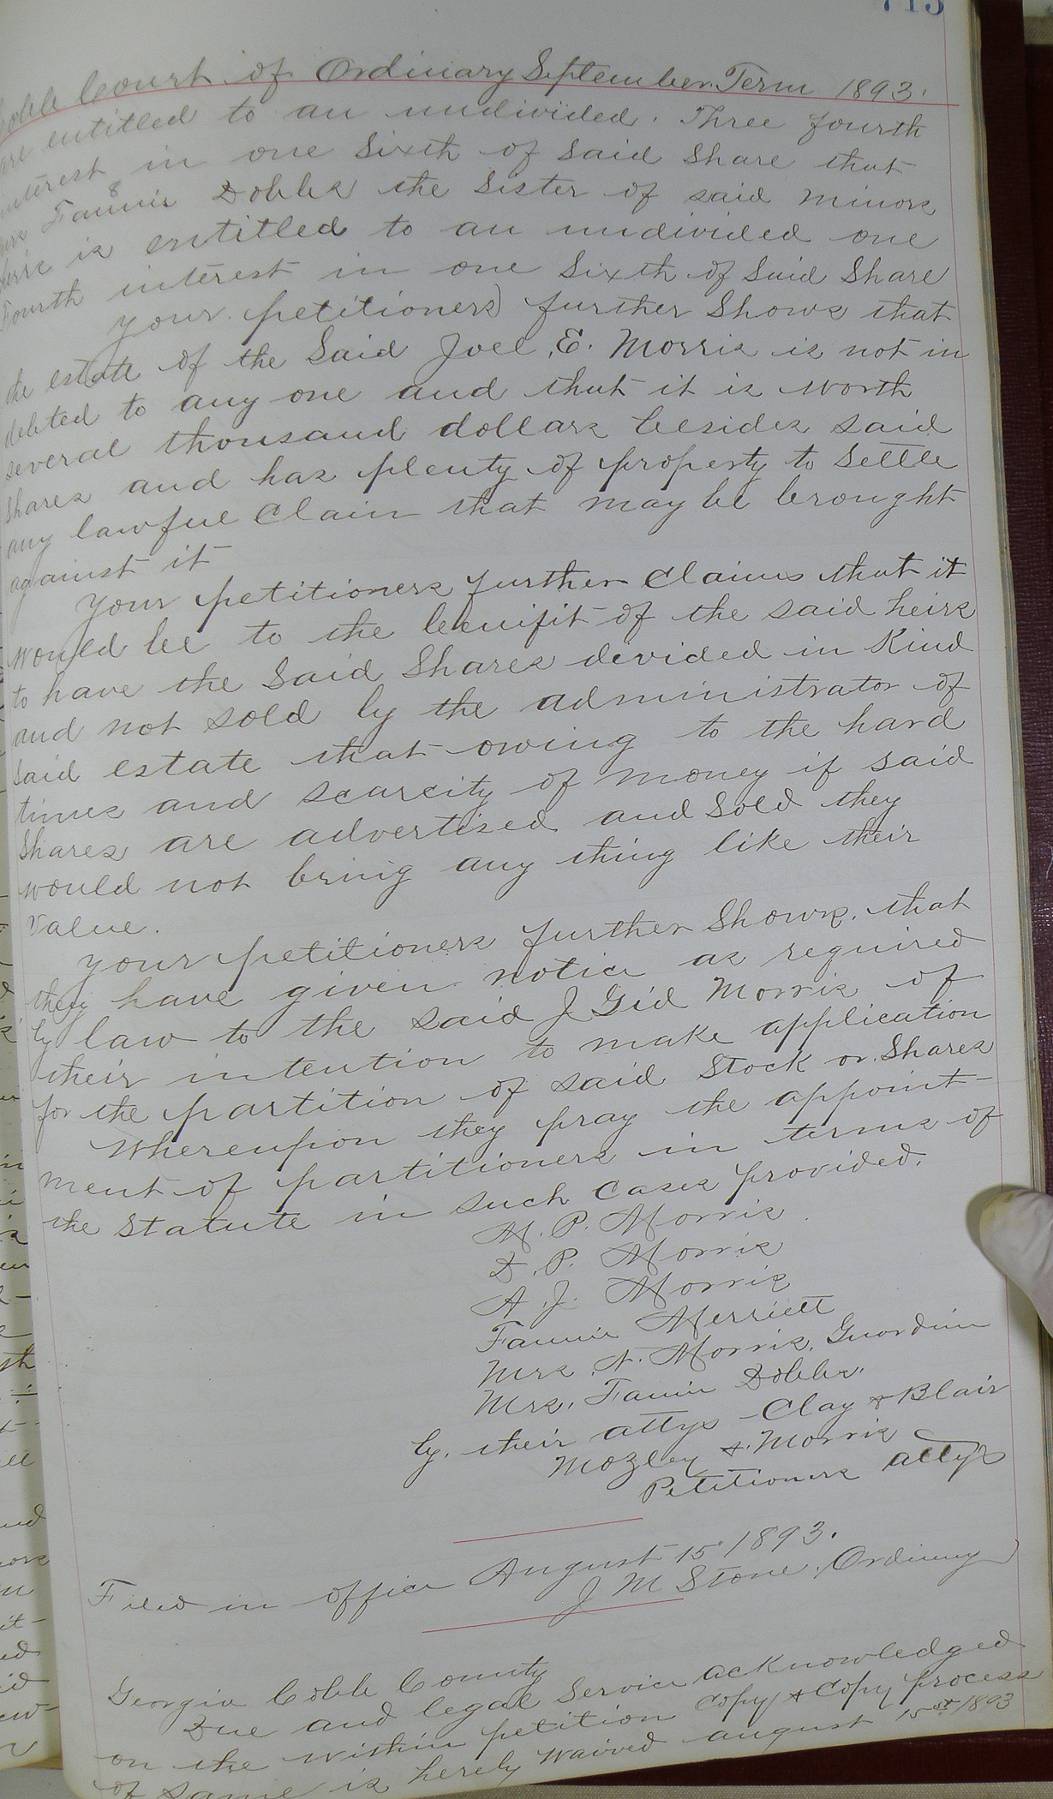 713
Cobb Court of Ordinary September Term 1893.
are entitled to an undivided Three fourth
interest in one Sixth of Said Share that
Fannie Dobbs the Sister of said minors
is entitled to an undivided one
Fourth interest in one Sixth of Said Share
Your petitioners further Shows that
the estate of the Said Joel, E. Morris is not in
debted to any one and that it is worth
several thousand dollars besides said
Shares and has plenty of property to Settle
any lawful Claim that may be brought
against it
Your petitioners further Claims that it
would be to the benifit of the said heirs
to have the Said Shares devided in Kind
and not sold by the administrator of
said estate that owing to the hard
times and scarcity of money if said
Shares are advertised and Sold they
would not bring any thing like their
Value.
Your petitioners further Shows. that
they have given notice as required
by law to the said J Gid Morris of
their intention to make application
for the partition of said Stock or Shares
Whereupon they pray the appoint-
ment of partitioners in terms of
the Statute in such Cases provided.
M. P. Morris
D. P. Morris
A. J. Morris
Fannie Merriett
Mrs. N. Morris, Guardian
Mrs, Fannie Dobbs.
by. their attys Clay & Blair
Mozley & Morris
Petitioners attys
Filed in office August 15 1893.
J M Stone, Ordinary
Georgia Cobb County
Due and legal Service acknowledged
on the within petition Copy & Copy process
of same is hereby Waived august 15st 1893